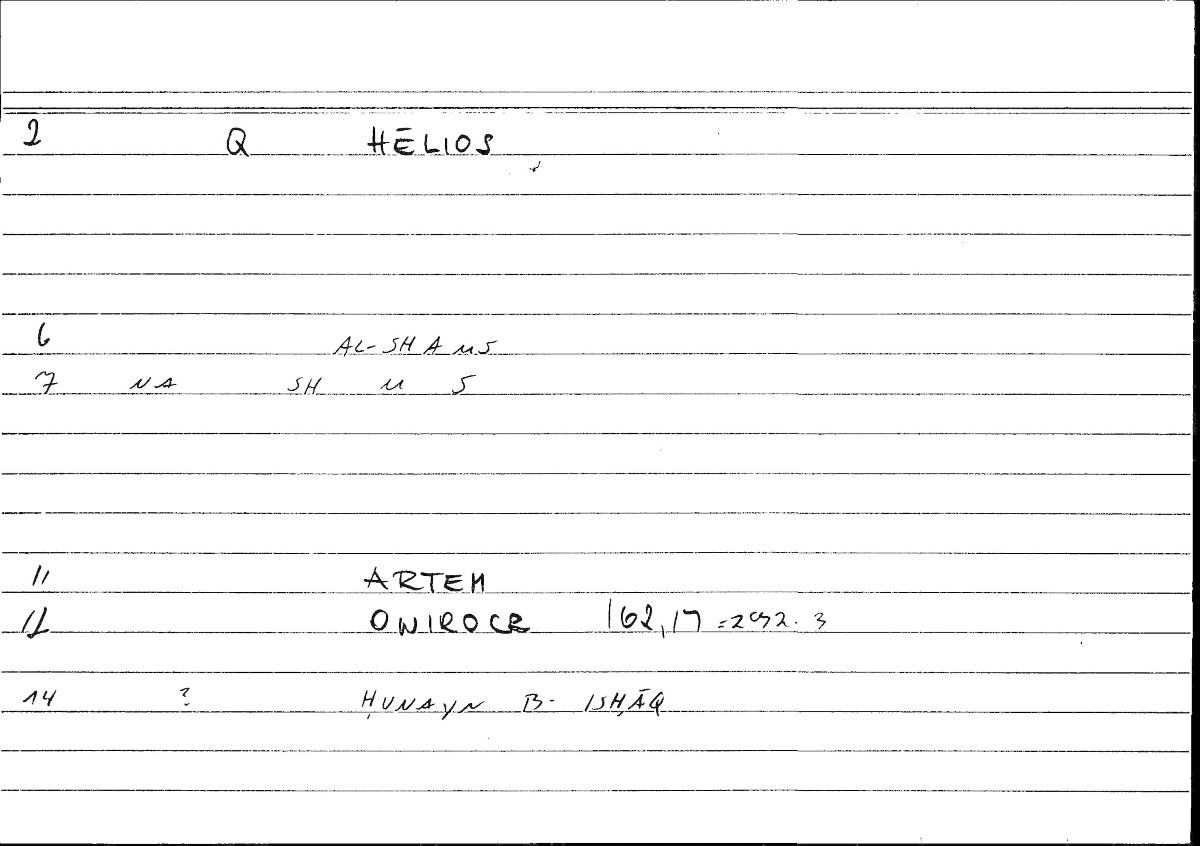 2 Q HĒLIOS
6 AL-SHAMS
7 NA SH M S
11 ARTEM
12 ONIROCR 162,17 = 292.3
14 ? ḤUNAYN B- ISḤĀQ